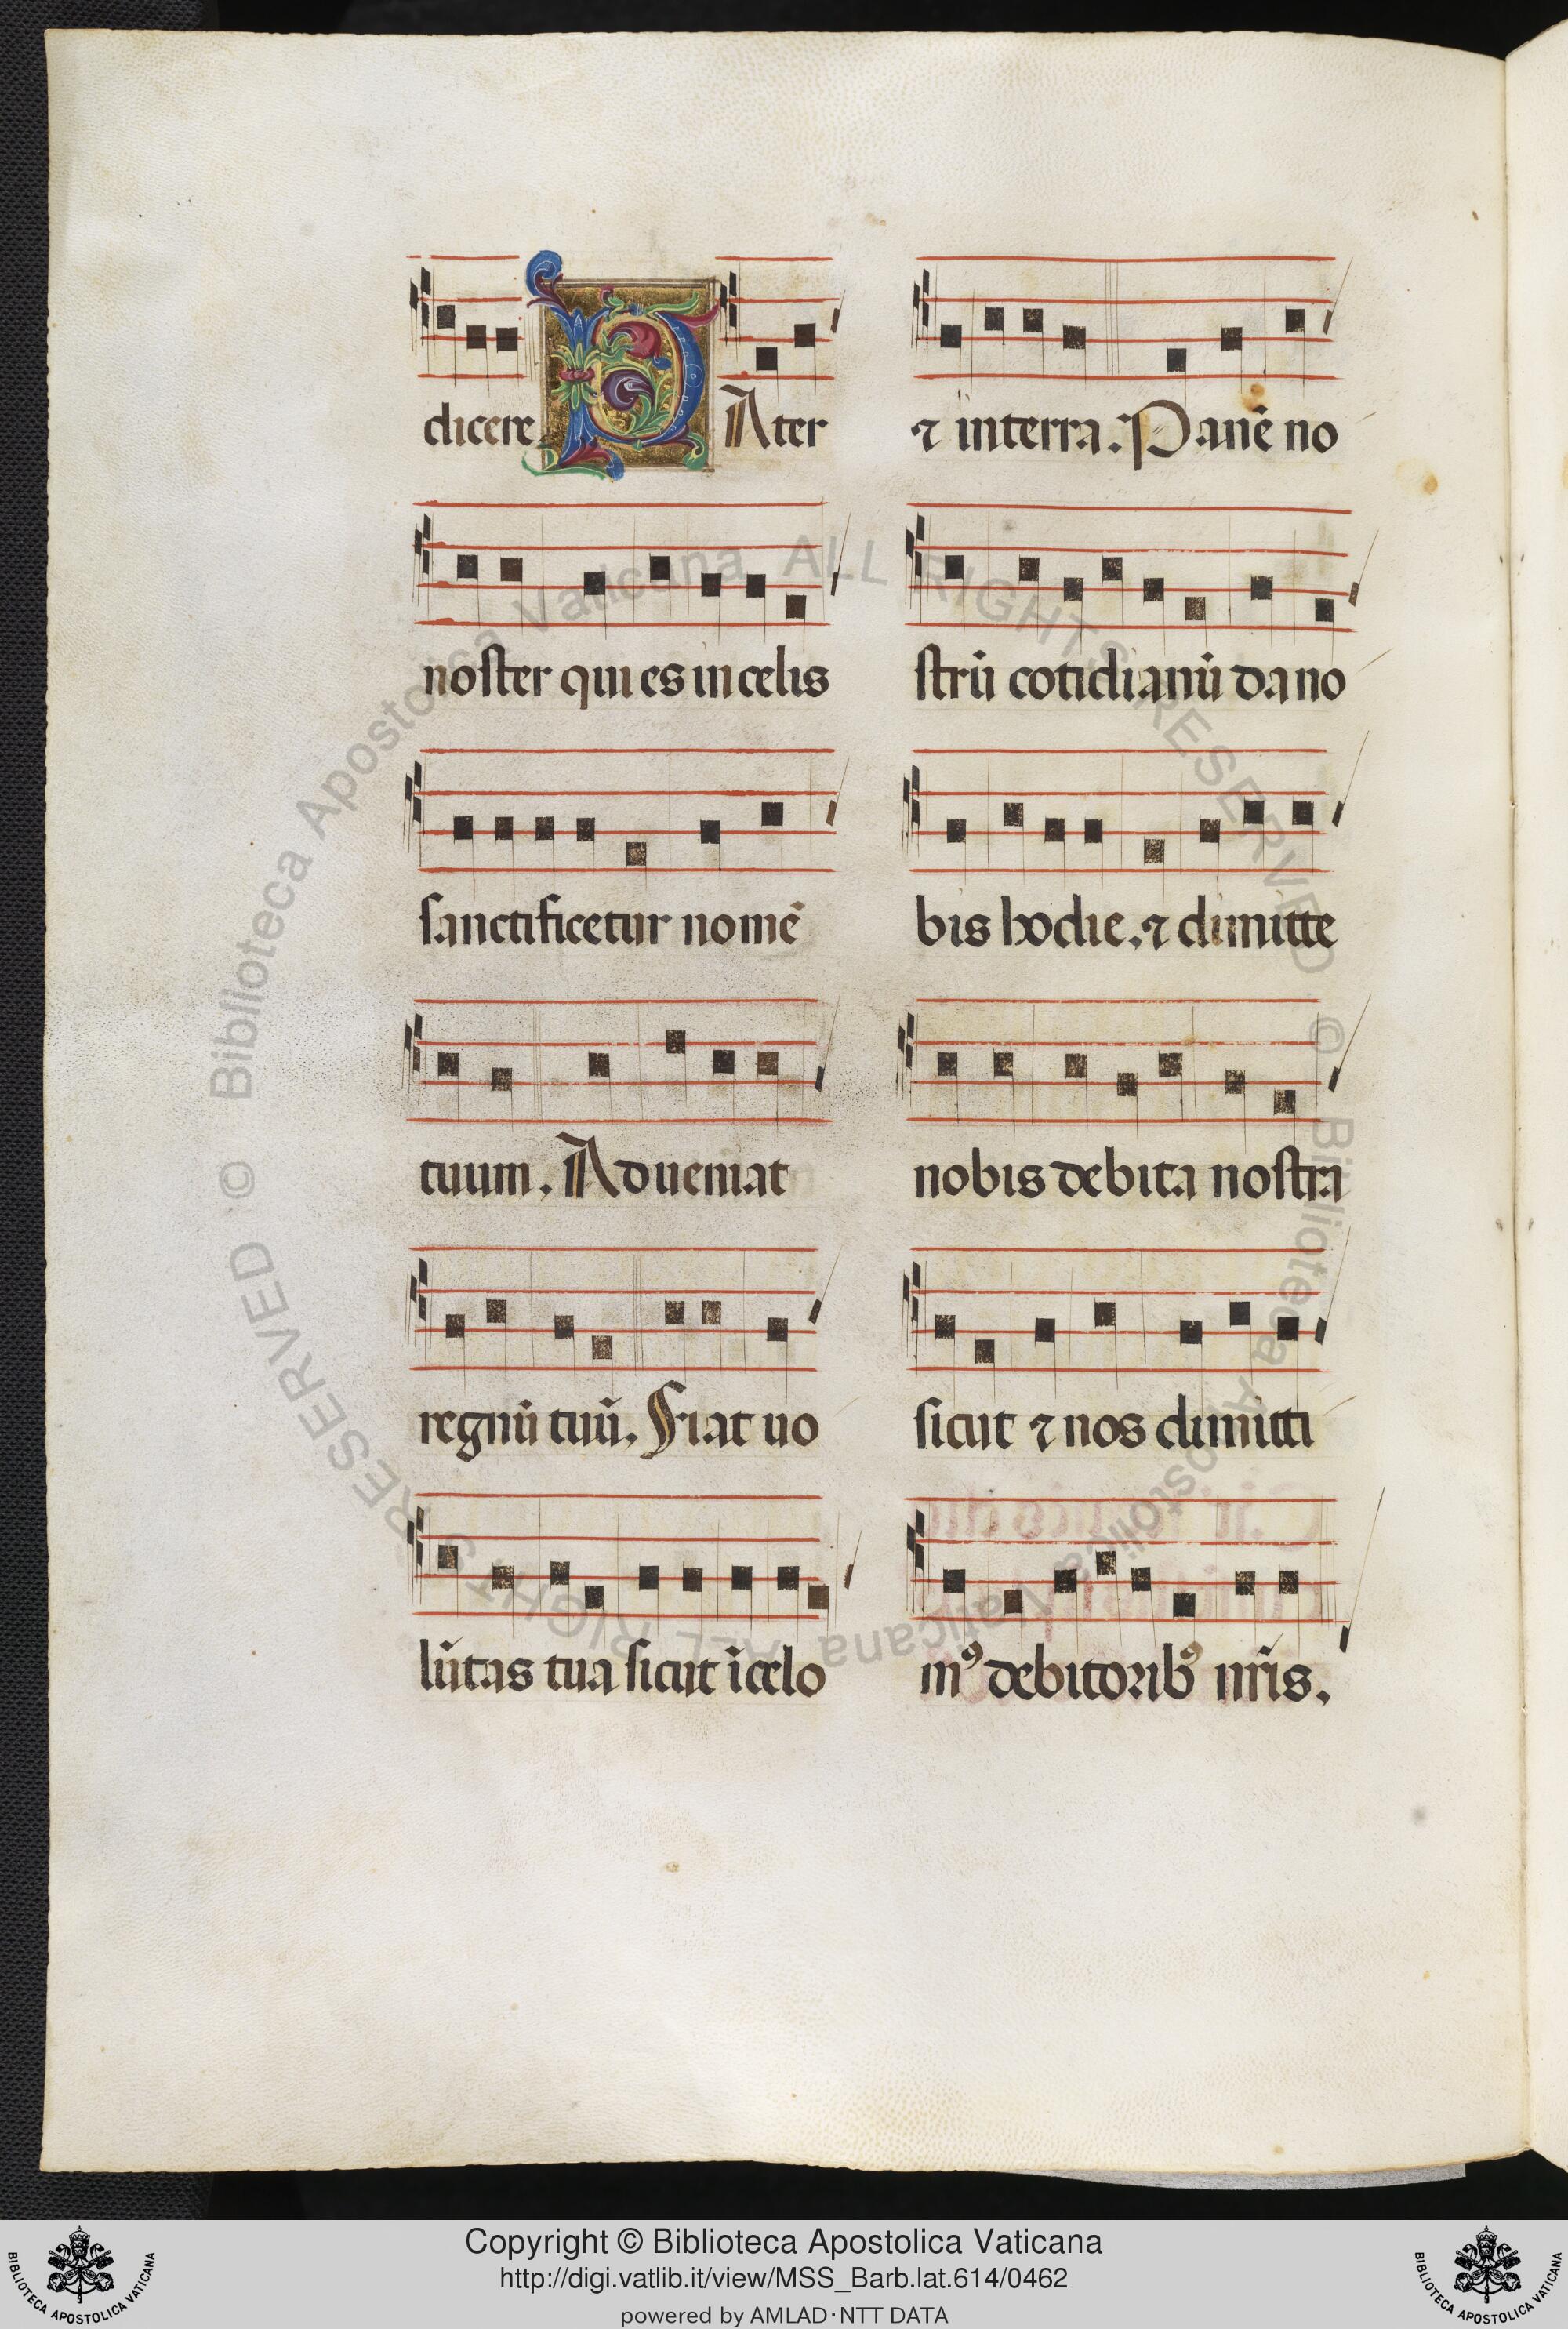 dicere PAter
noster qui es in celis
sanctificetur nomē
tuum. Adueniat
regnū tuū. Fiat uo
lūtas tua sicut ī celo
⁊ in terra. Panē no
strū cotidianū da no
bis hodie. ⁊ dimitte
nobis debita nostra
sicut ⁊ nos dimitti
mꝰ debitoribꝰ nr̄is.
© Biblioteca Apostolica Vaticana ALL RIGHTS RESERVED © Biblioteca Apostolica Vaticana ALL RIGHTS RESERVED
Copyright © Biblioteca Apostolica Vaticana
http://digi.vatlib.it/view/MSS_Barb.lat.614/0462
powered by AMLAD·NTT DATA
BIBLIOTECA APOSTOLICA VATICANA
BIBLIOTECA APOSTOLICA VATICANA